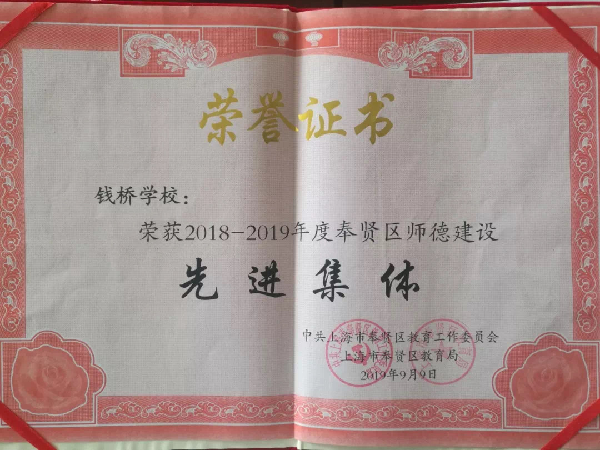 荣誉证书
钱桥学校：
荣获2018-2019年度奉贤区师德建设
先进集体
中共上海市奉贤区教育工作委员会
上海市奉贤区教育局
2019年9月9日